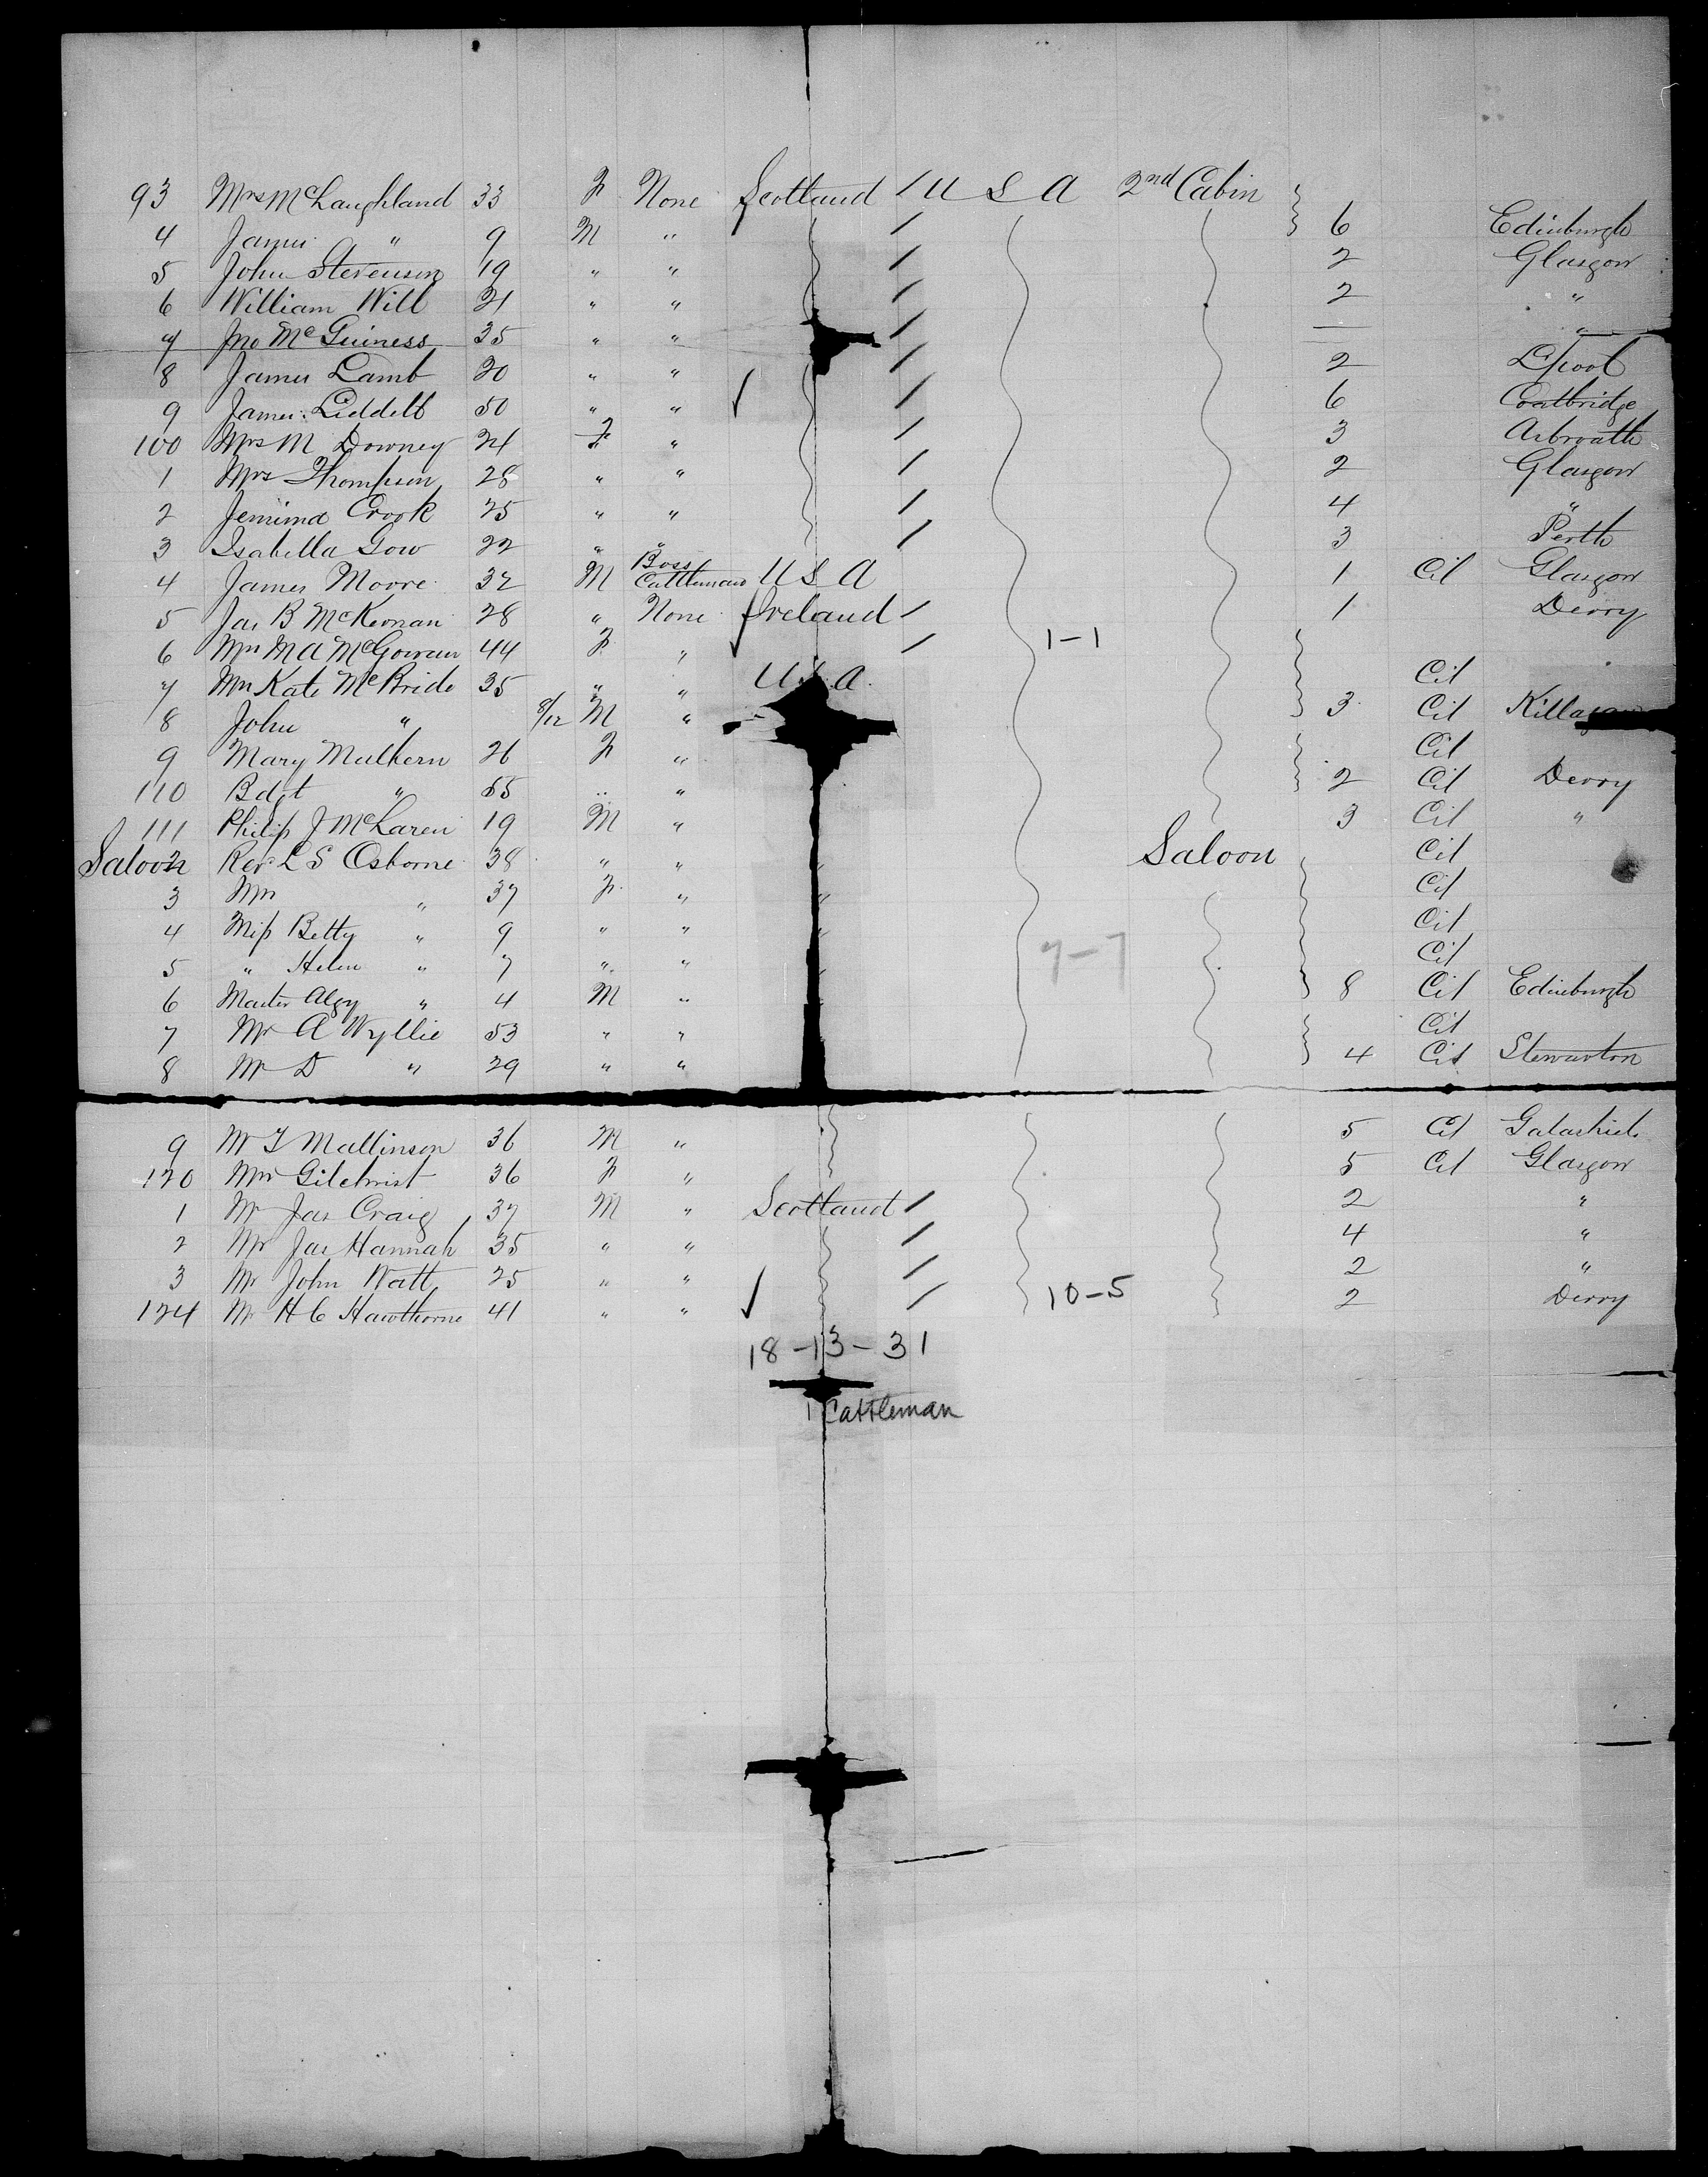 93 Mrs McLaughland 33 F None Scotland / U S A 2nd Cabin
4 James " 9 M " / 6 Edinburgh
5 John Stevenson 19 " " / 2 Glasgow
6 William Will 21 " " / 2 "
7 Jno McGuiness 35 " " / — "
8 James Lamb 20 " " / 2 L'pool
9 James Liddell 50 " " ✓ / 6 Coatbridge
100 Mrs M Downey 24 F " / 3 Arbroath
1 Mrs Thompson 28 " " / 2 Glasgow
2 Jemima Crook 25 " " / 4 "
3 Isabella Gow 22 " " / 3 Perth
4 James Moore 32 M Boss Cattleman U S A 1 Cit Glasgow
5 Jas B McKeonan 28 " None Ireland / 1 Derry
6 Mrs M A McGowan 44 F " ✓ / 1-1
7 Mrs Kate McBride 35 " " U.S.A. Cit
8 John " 8/12 M " 3 Cit
9 Mary Mulhern 26 F " Cit
110 Bdgt " 55 " " 2 Cit Derry
111 Philip J McLaren 19 M " 3 Cit "
Saloon 2 Rev L S Osborne 38 " " " Saloon Cit
3 Mrs " 37 F " " Cit
4 Miss Betty " 9 " " " Cit
5 " Helen " 7 " " 7-7 Cit
6 Master Algy " 4 M " 8 Cit Edinburgh
7 Mr A Wyllie 53 " " Cit
8 Mr D " 29 " " 4 Cit Stewarton
9 Mr T Mallinson 36 M " 5 Cit Galashiels
120 Mrs Gilchrist 36 F " 5 Cit Glasgow
1 Mr Jas Craig 37 M " Scotland / 2 "
2 Mr Jas Hannah 35 " " / 4 "
3 Mr John Watt 25 " " / 2 "
124 Mr H C Hawthorne 41 " " ✓ / 10-5 2 Derry
18-13-31
1 Cattleman